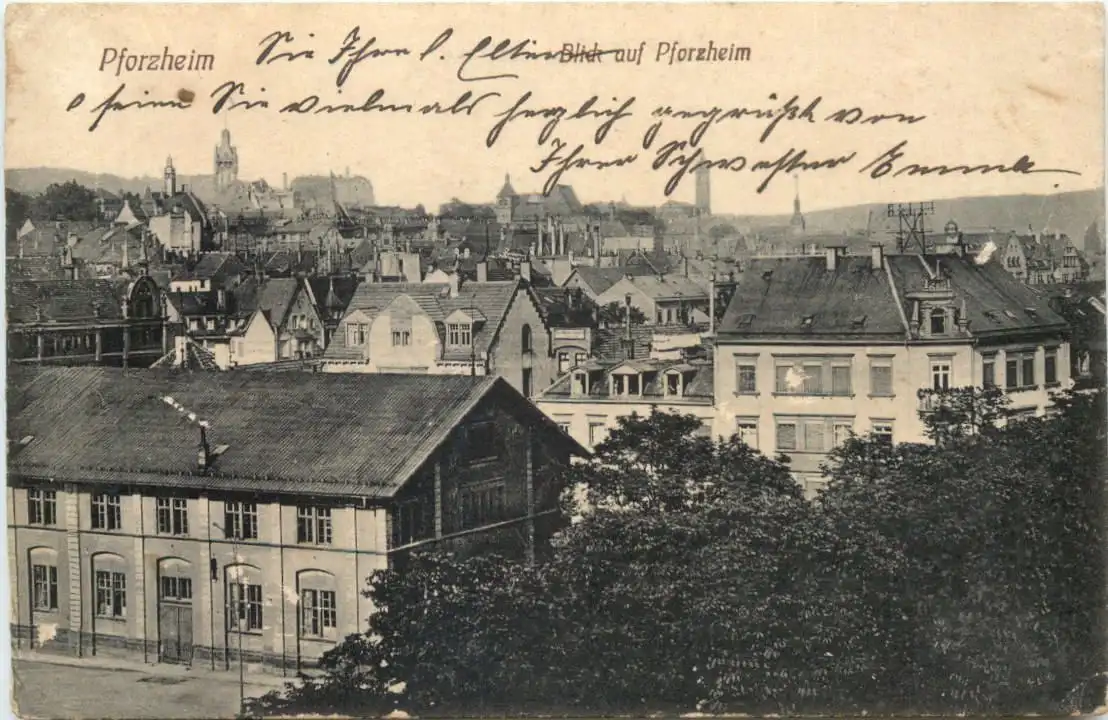 Pforzheim
Blick auf Pforzheim
Sie Ihre l. Eltern
seien Sie vielmals herzlich gegrüßt von
Ihrer Schwester Emma